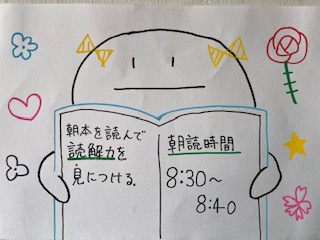 朝本を読んで
読解力を
見につける.
朝読時間
8:30～
8:40